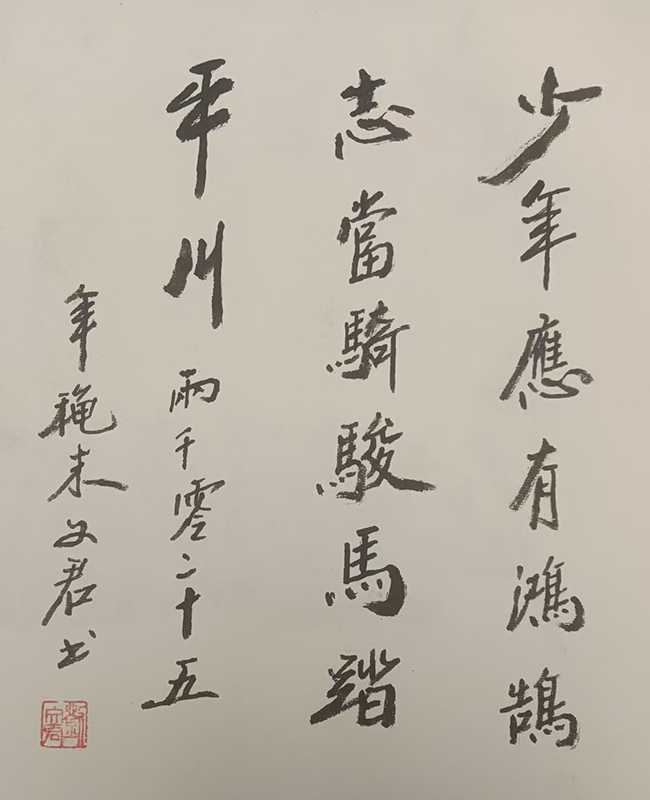 少年應有鴻鵠
志當騎駿馬踏
平川 兩千零二十五
年穐末文君书